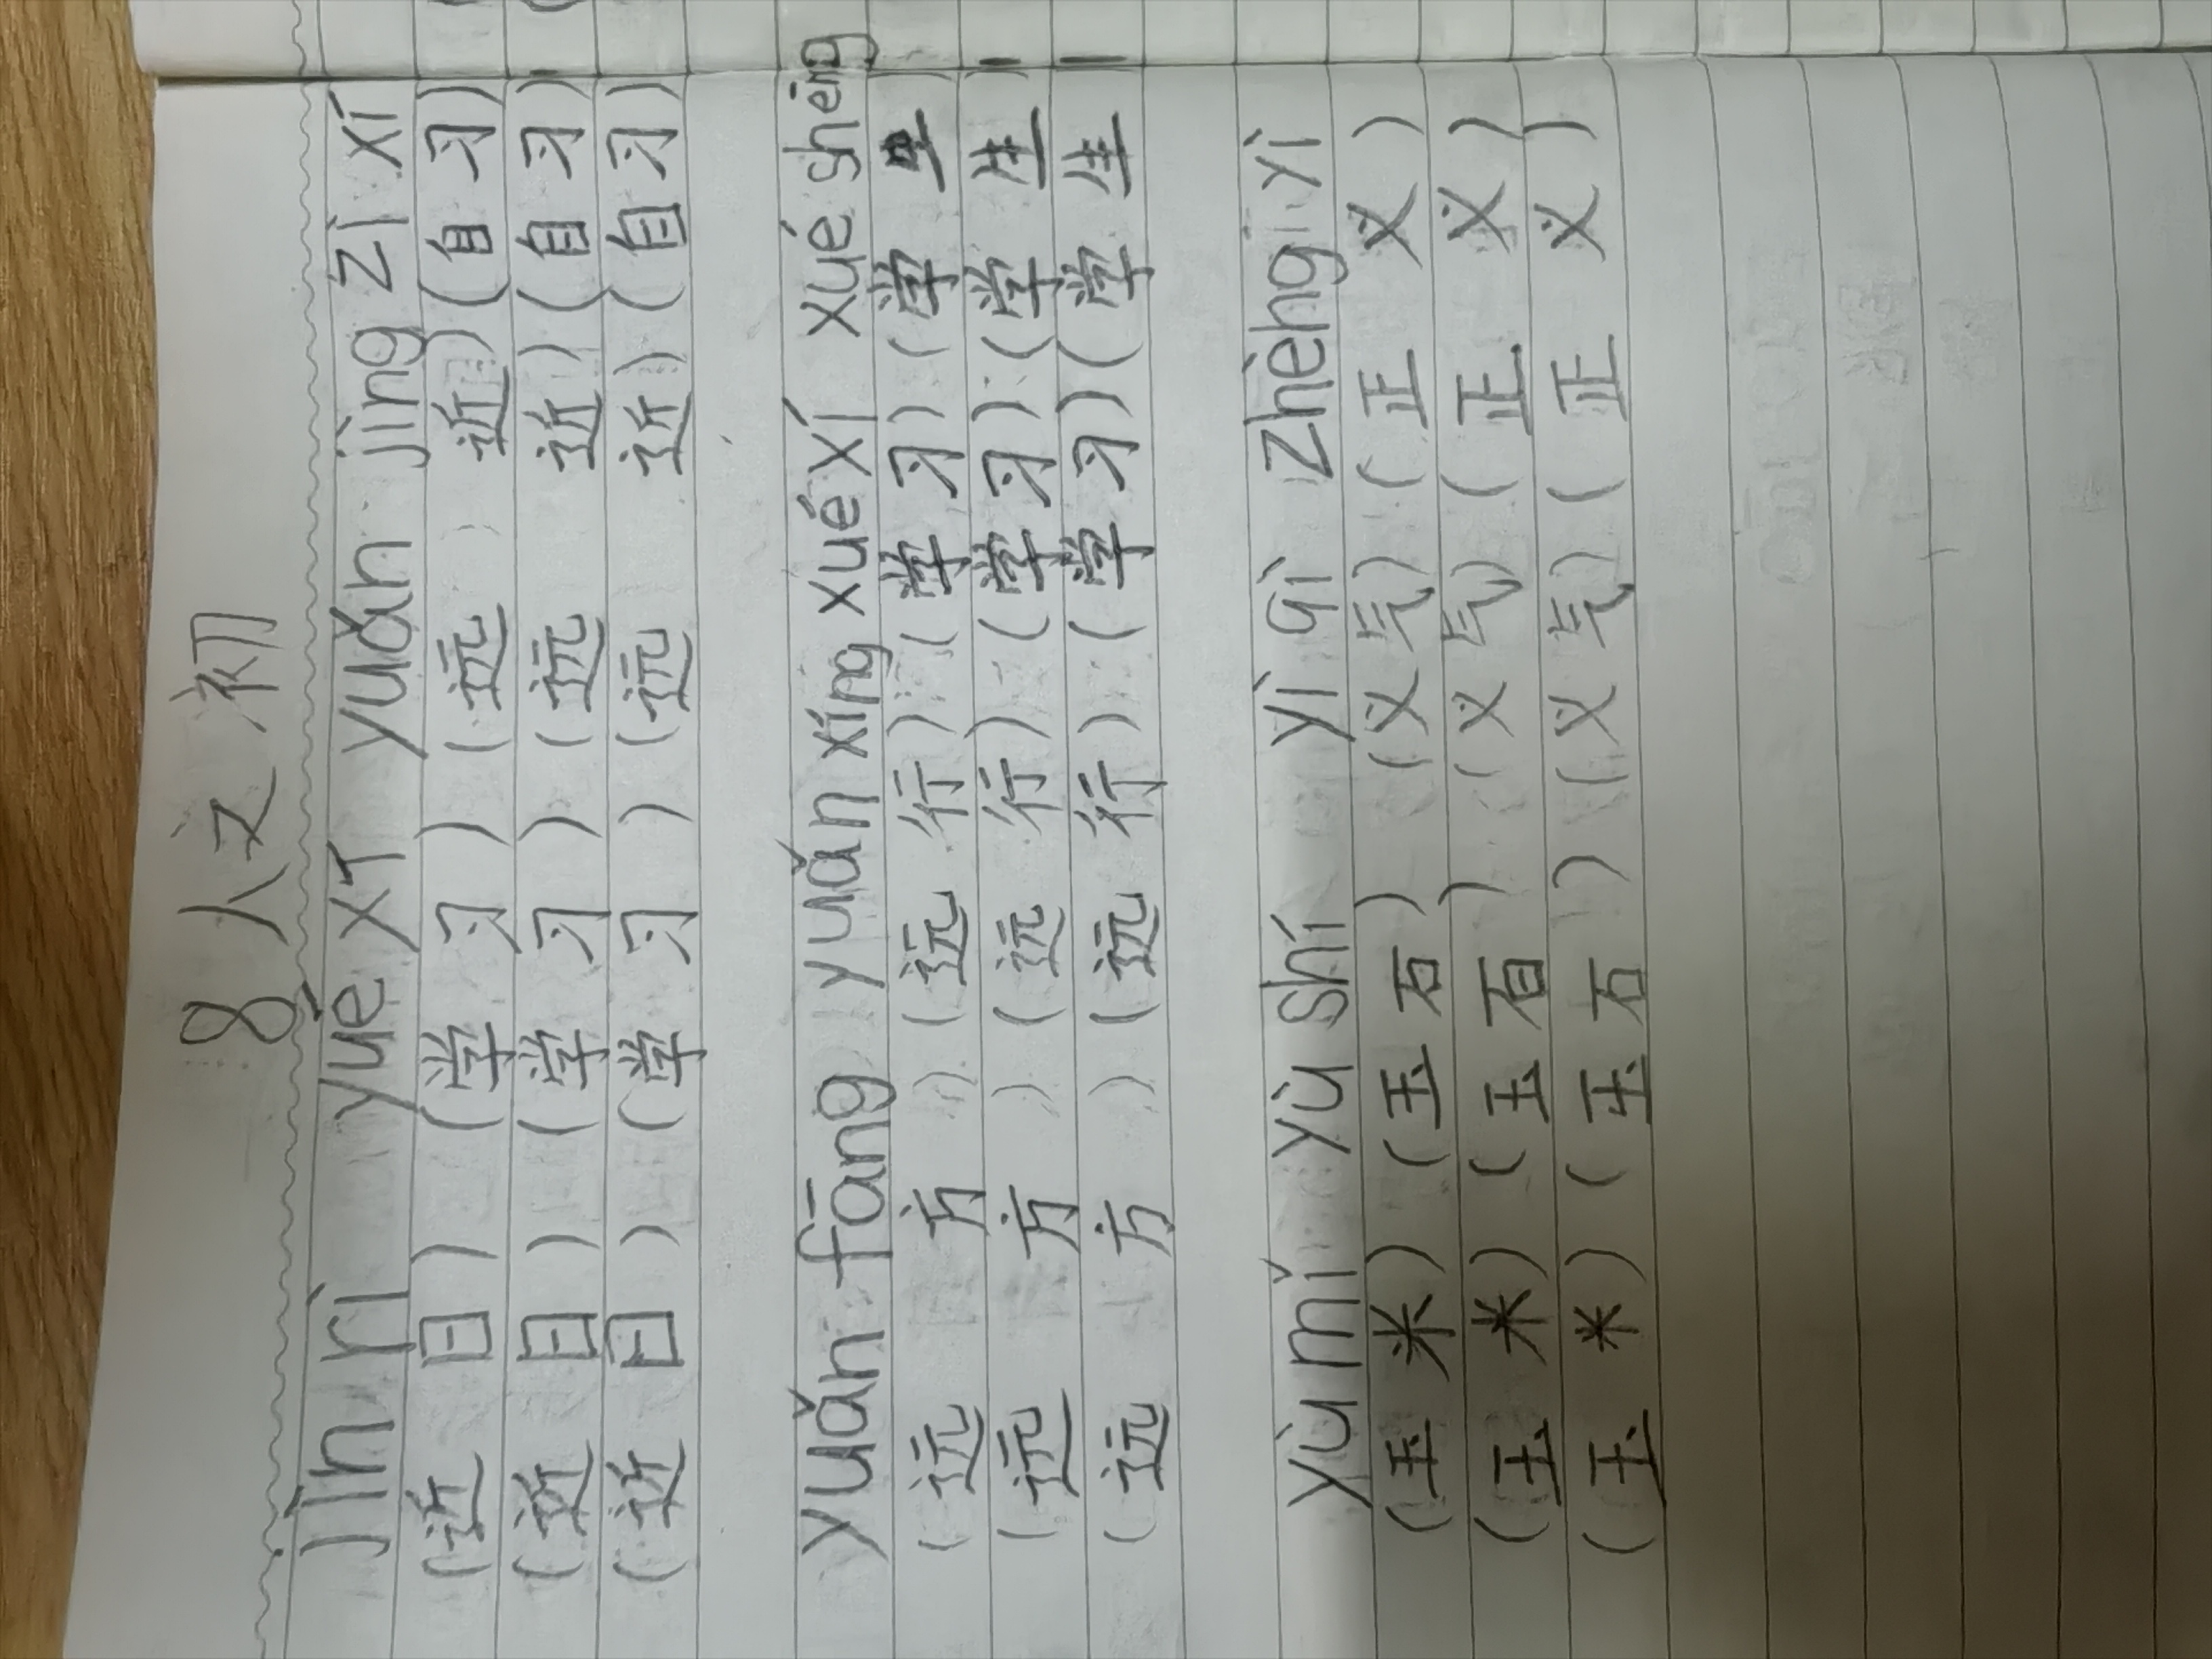 8 人之初
jìn rì yué xī yuǎn jìng zì xí
(近 日) (学 习) (远 近) (自 习)
(近 日) (学 习) (远 近) (自 习)
(近 日) (学 习) (远 近) (自 习)
yuǎn fāng yuǎn xíng xué xí xué shēng
(远 方) (远 行) (学 习) (学 生
(远 方) (远 行) (学 习) (学 生
(远 方) (远 行) (学 习) (学 生
yù mǐ yù shí yì qì zhèng yì
(玉 米) (玉 石) (义 气) (正 义)
(玉 米) (玉 石) (义 气) (正 义)
(玉 米) (玉 石) (义 气) (正 义)